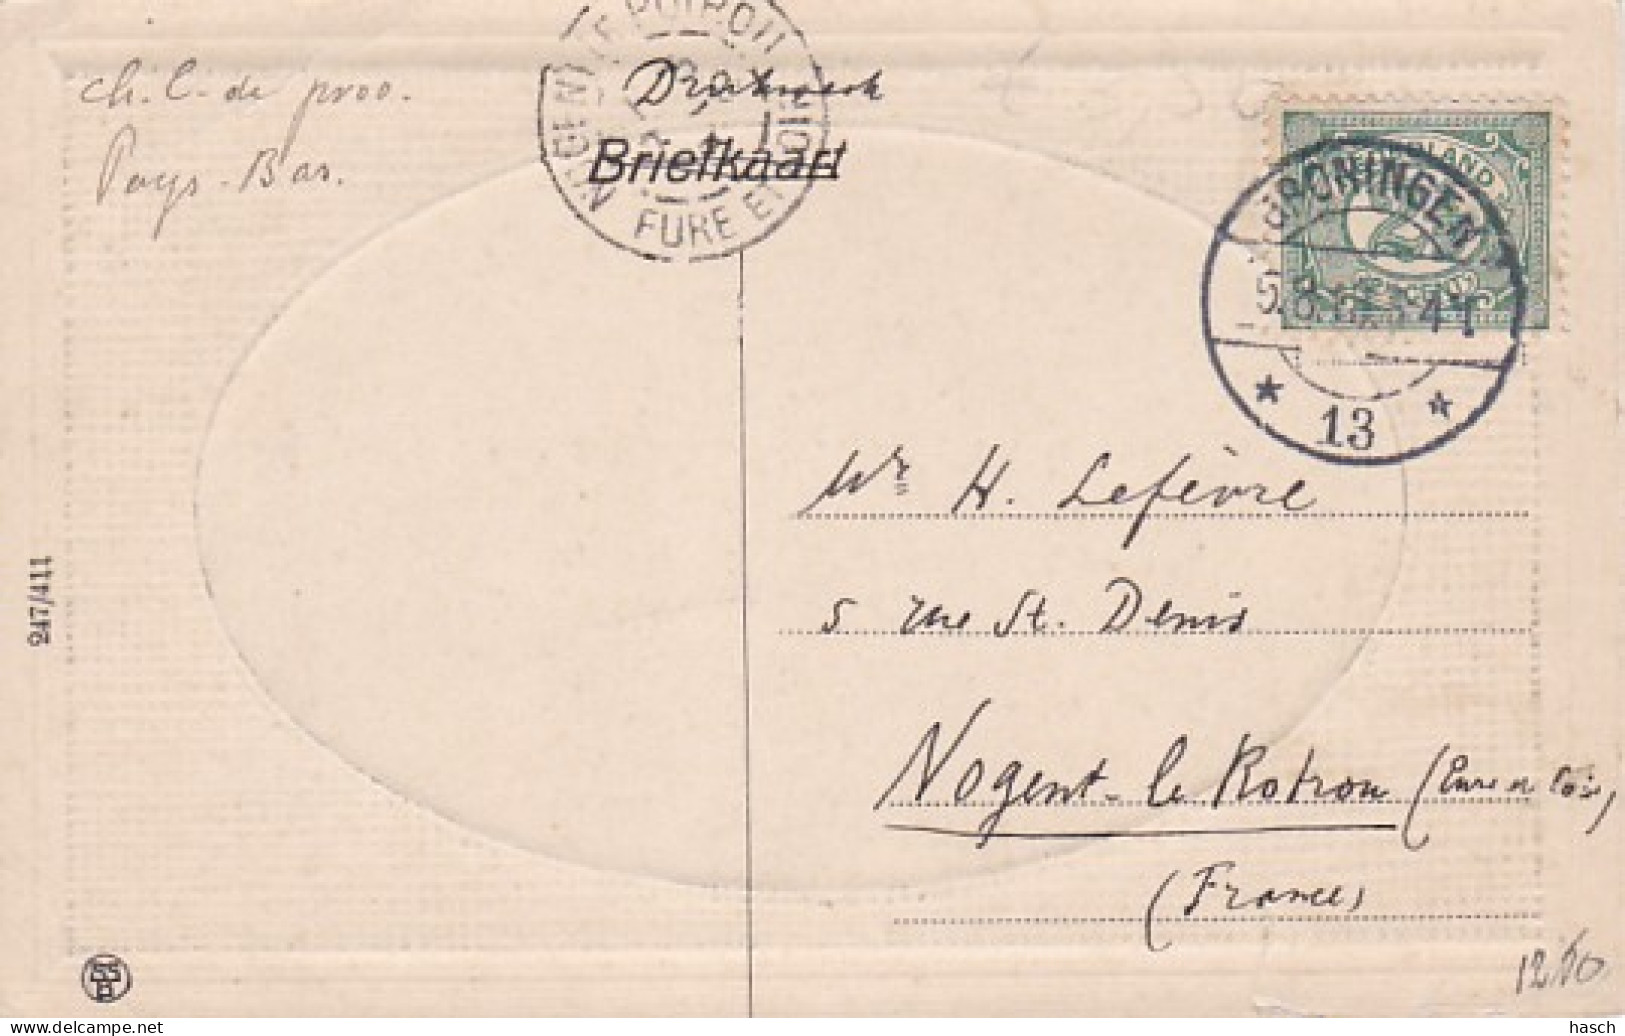 ch. C. de proo.
Pays-Bas.
NOGENT LE ROTROU
EURE ET LOIR
Drukwerk
Briefkaart
GRONINGEN
5.8.
4 V.
★ 13 ★
NEDERLAND
Mr H. Lefèvre
5 rue St. Denis
Nogent-le Rotrou (Eure et Loir)
(France)
247/411
SS
B
hasch